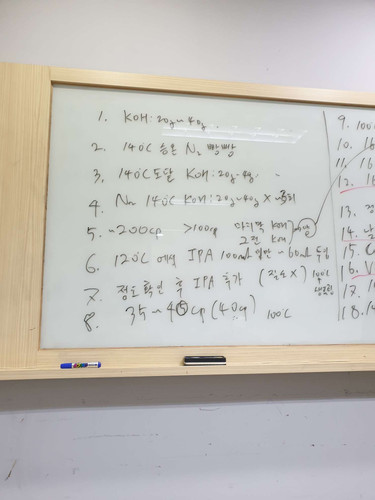 1. KOH: 20g~40g.
2. 140℃ 승온 N₂ 빵빵
3. 140℃ 도달 KOH: 20g~40g.
4. N₂ 140℃ KOH: 20g~40g ×
5. ~200cp >100cp 마지막 KOH
그만 KOH
6. 120℃ 에서 IPA 100ml ~60ml 투입
7. 점도 확인 후 IPA 추가 (질소X) 100℃
8. 35~45cp (40cp) 100℃
9. 100
10. 16
11. 16
12. 16
13.
14.
15.
16. V
17. 10
18. 14